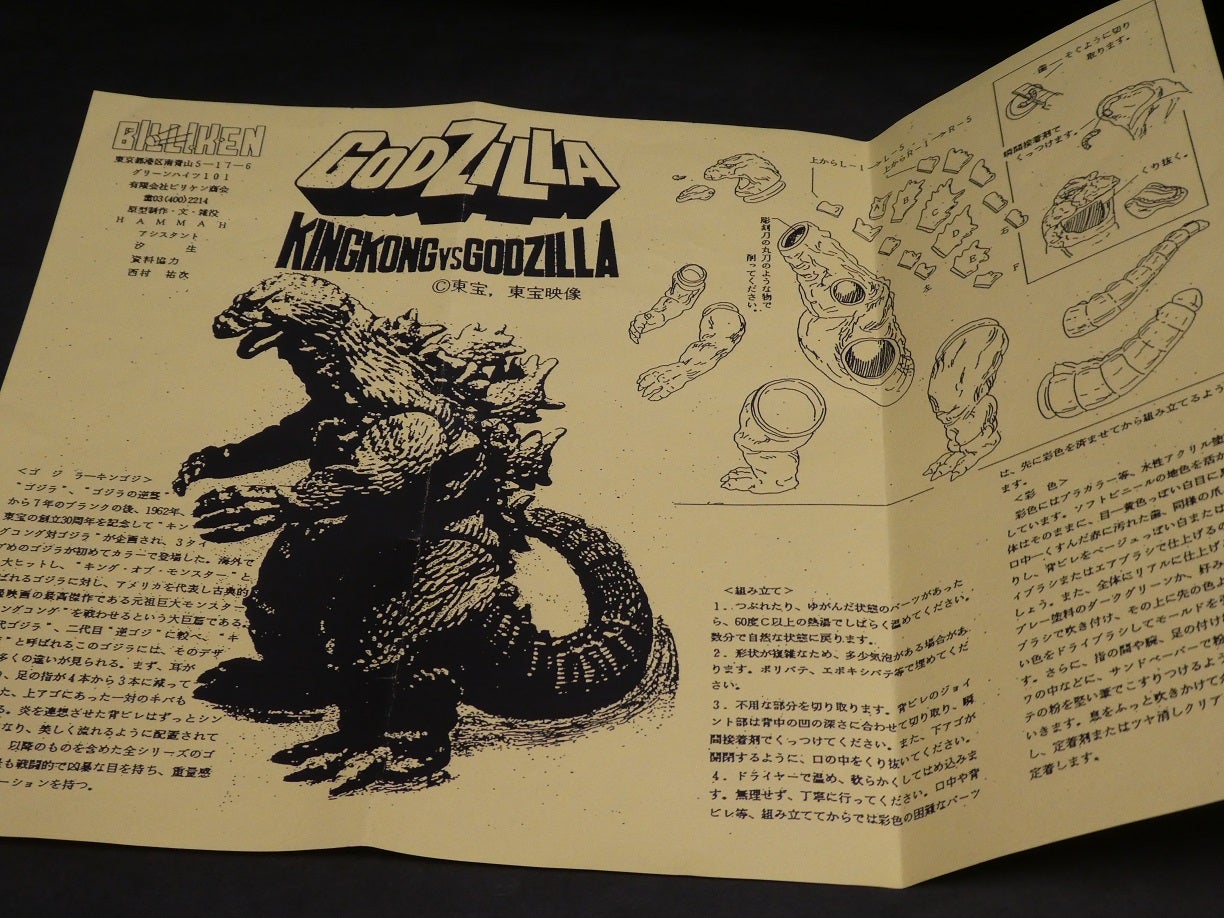 BILLIKEN
東京都港区南青山5－17－6
グリーンハイツ101
有限会社ビリケン商会
☎03(400)2214
原型制作・文・雑役
HAMMAH
アシスタント
汐 生
資料協力
西村 祐次
GODZILLA
KINGKONG VS GODZILLA
©東宝，東宝映像
<ゴジラーキンゴジ>
"ゴジラ"、"ゴジラの逆襲"
から7年のブランクの後、1962年、
東宝の創立30周年を記念して"キン
グコング対ゴジラ"が企画され、3タ
めのゴジラが初めてカラーで登場した。海外で
大ヒットし、"キング・オブ・モンスター"と
ばれるゴジラに対し、アメリカを代表し古典的
映画の最高傑作である元祖巨大モンスター
ングコング"を戦わせるという大巨篇である。
代ゴジラ"、二代目"逆ゴジ"に較べ、"キ
"と呼ばれるこのゴジラには、そのデザ
多くの違いが見られる。まず、耳が
、足の指が4本から3本に減って
た、上アゴにあった一対のキバも
る。炎を連想させた背ビレはずっとシン
なり、美しく流れるように配置されて
以降のものを含めた全シリーズのゴ
も戦闘的で凶暴な目を持ち、重量感
ーションを持つ。
上からL－1→L－5
上からR－1→R－5
彫刻刀の丸刀のような物で
削ってください。
A
B
C
D
E
F
歯 そぐように切り
取ります。
瞬間接着剤で
くっつけます。
くり抜く。
<組み立て>
1．つぶれたり、ゆがんだ状態のパーツがあった
ら、60度C以上の熱湯でしばらく温めてください。
数分で自然な状態に戻ります。
2．形状が複雑なため、多少気泡がある場合があ
ります。ポリパテ、エポキシパテ等で埋めてくだ
さい。
3．不用な部分を切り取ります。背ビレのジョイ
ント部は背中の凹の深さに合わせて切り取り、瞬
間接着剤でくっつけてください。また、下アゴが
開閉するように、口の中をくり抜いてください。
4．ドライヤーで温め、軟らかくしてはめ込みま
す。無理せず、丁寧に行ってください。口中や背
ビレ等、組み立ててからでは彩色の困難なパーツ
は、先に彩色を済ませてから組み立てるよう
ます。
<彩 色>
彩色にはプラカラー等、水性アクリル塗
しています。ソフトビニールの地色を活か
体はそのままに、目一黄色っぽい白目に黒
口中一くすんだ赤に汚れた歯、同様の爪
りし、背ビレをベージュっぽい白または
イブラシまたはエアブラシで仕上げる
しょう。また、全体にリアルに仕上げる
プレー塗料のダークグリーンか、好み
ブラシで吹き付け、その上に先の色よ
い色をドライブラシしてモールドを
す。さらに、指の間や腕、足の付け
ワの中などに、サンドペーパーで粉
テの粉を堅い筆でこすりつけるよう
いきます。息をふっと吹きかけて
し、定着剤またはツヤ消しクリア
定着します。